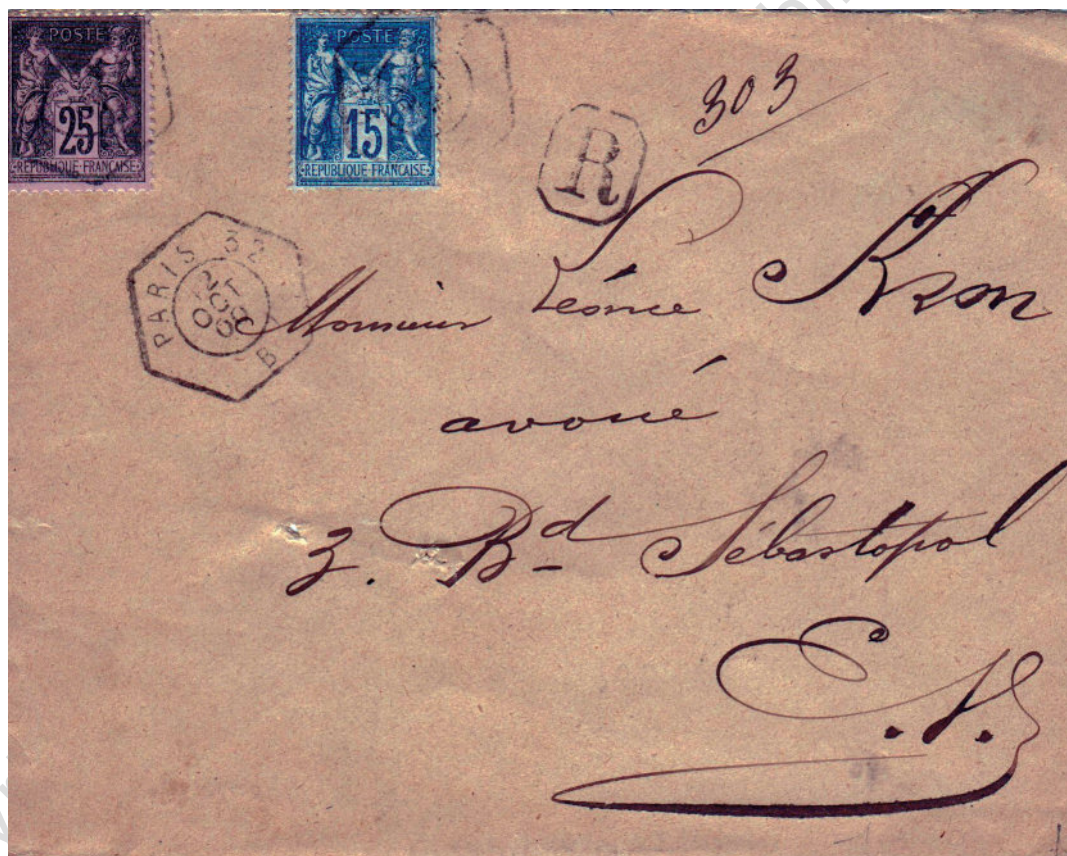 POSTE
25
REPUBLIQUE FRANÇAISE
POSTE
15
REPUBLIQUE FRANÇAISE
303
R
PARIS 32
2
OCT
B
Monsieur Léonce
avoué
3. Bd Sébastopol
E. V.